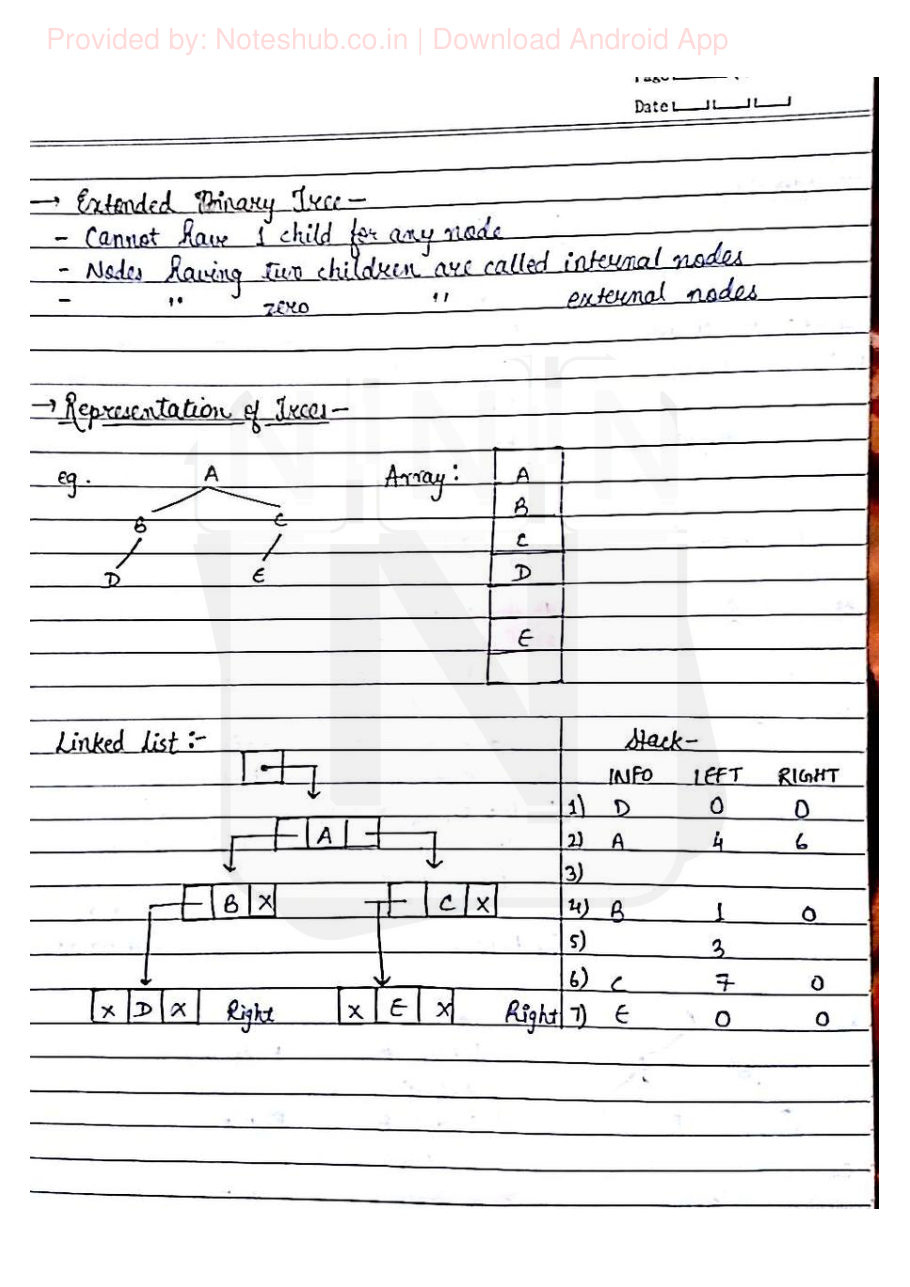 Provided by: Noteshub.co.in | Download Android App
Date
→ Extended Binary Tree -
- Cannot have 1 child for any node
- Nodes having two children are called internal nodes
- " zero " external nodes
→ Representation of Trees -
eg. A
B C
D E
Array :
A
B
C
D
E
Linked List :-
A
B X C X
X D X Right X E X Right
Stack -
INFO LEFT RIGHT
1) D 0 0
2) A 4 6
3)
4) B 1 0
5) 3
6) C 7 0
7) E 0 0